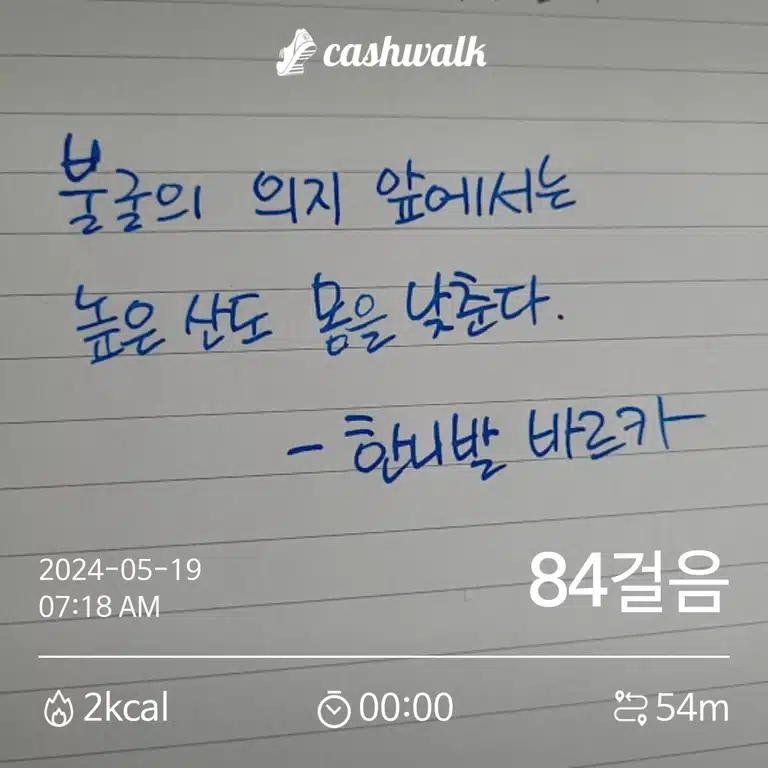 cashwalk
불굴의 의지 앞에서는
높은 산도 몸을 낮춘다.
- 한니발 바르카 -
2024-05-19
07:18 AM
84걸음
2kcal
00:00
54m